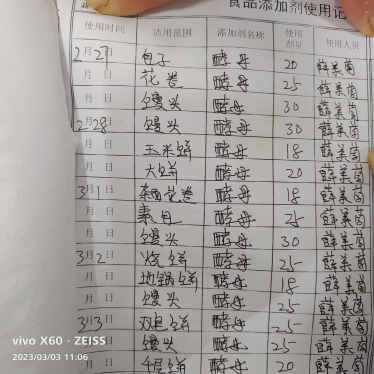 食品添加剂使用记
使用时间 适用范围 添加剂名称 使用剂量 使用人员
2月27日 包子 酵母 20 薛美茵
月 日 花卷 酵母 25 薛美茵
月 日 馒头 酵母 30 薛美茵
2月28日 馒头 酵母 30 薛美茵
月 日 玉米饼 酵母 18 薛美茵
月 日 大饼 酵母 20 薛美茵
3月1日 花卷 酵母 18 薛美茵
月 日 素包 酵母 25 薛美茵
月 日 馒头 酵母 30 薛美茵
3月2日 烧饼 酵母 25 薛美茵
月 日 地锅饼 酵母 18 薛美茵
月 日 馒头 酵母 25 薛美茵
3月3日 双色饼 酵母 25 薛美茵
月 日 馒头 酵母 25 薛美茵
月 日 千层饼 酵母 20 薛美茵
vivo X60 · ZEISS
2023/03/03 11:06